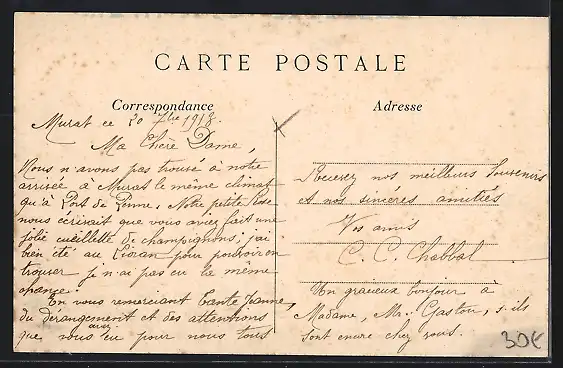 CARTE POSTALE
Correspondance
Adresse
Murat ce 20 7bre 1918.
Ma Chère Dame,
Nous n'avons pas trouvé à notre
arrivée à Murat le même climat
qu'à Port de Penne. Notre petite
nous écrivait que vous aviez fait une
jolie cueillette de champignons, j'ai
bien été au Lioran pour pouvoir en
trouver je n'ai pas eu le même
chance.
En vous remerciant tante Jeanne,
du dérangement et des attentions
que vous avez eu pour nous tous
Recevez nos meilleurs Souvenirs
et nos sincères amitiés
Vos amis
C. C. Chabbal
Un gracieux bonjour à
Madame, Mr. Gaston, s'ils
sont encore chez vous.
30€